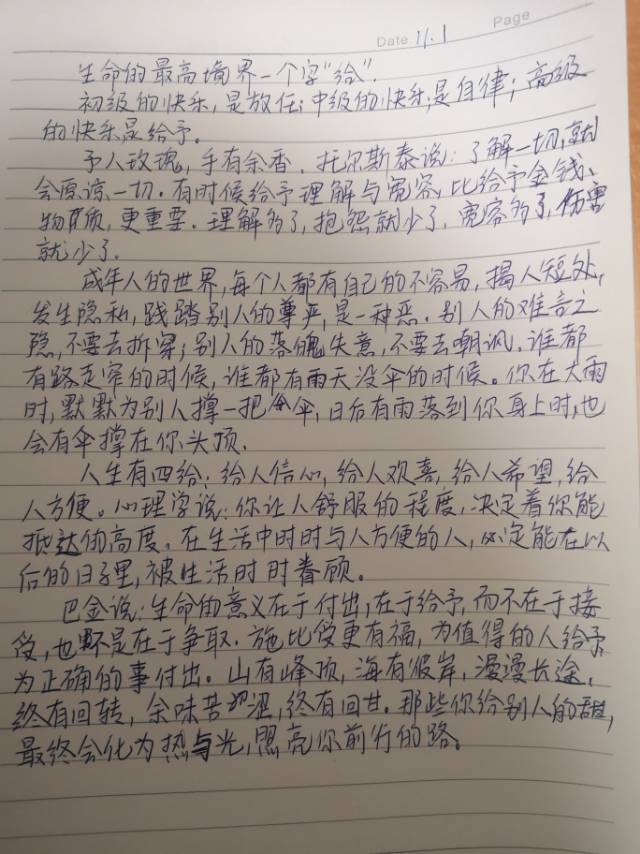 Date 11.1 Page
生命的最高境界一个字"给".
初级的快乐,是放任;中级的快乐,是自律;高级
的快乐是给予。
予人玫瑰,手有余香.托尔斯泰说:了解一切,就
会原谅一切.有时候给予理解与宽容,比给予金钱、
物质,更重要.理解多了,抱怨就少了,宽容多了,伤害
就少了.
成年人的世界,每个人都有自己的不容易,揭人短处,
发生隐私,践踏别人的尊严,是一种恶.别人的难言之
隐,不要去拆穿;别人的落魄失意,不要去嘲讽.谁都
有路走窄的时候,谁都有雨天没伞的时候。你在大雨
时,默默为别人撑一把伞,日后有雨落到你身上时,也
会有伞撑在你头顶.
人生有四给:给人信心,给人欢喜,给人希望,给
人方便。心理学说:你让人舒服的程度,决定着你能
抵达的高度.在生活中时时与人方便的人,必定能在以
后的日子里,被生活时时眷顾。
巴金说:生命的意义在于付出,在于给予,而不在于接
受,也不是在于争取.施比受更有福,为值得的人给予,
为正确的事付出.山有峰顶,海有彼岸,漫漫长途,
终有回转,余味苦涩,终有回甘.那些你给别人的甜,
最终会化为热与光,照亮你前行的路。